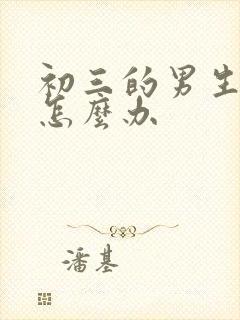 初三的男生
怎麼办
潘基